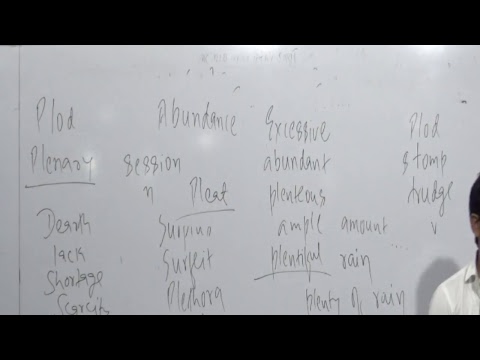 Plod Abundance Excessive Plod
Plenary session abundant stomp
n Pleat plenteous trudge
Dearth ample amount v
lack Surfeit plentiful rain
Shortage Plethora plenty of rain